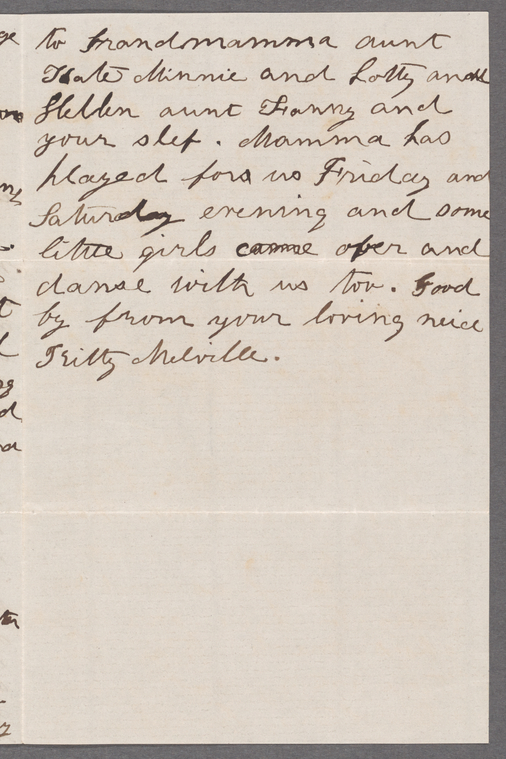 to Grandmamma aunt
Kate Minnie and Lotty and
Hellen aunt Fanny and
your slef. Mamma has
played fors us Friday and
Saturday evening and some
little girls came ofer and
danse with us too. Good
by from your loving neice
Kitty Melville.